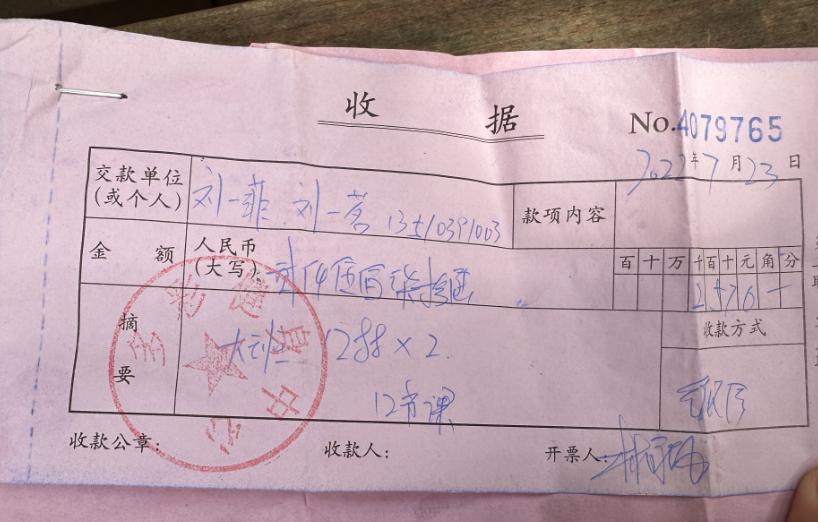 收 据
No.4079765
2022年7月23日
交款单位
(或个人)
刘一菲 刘一茗
款项内容
金 额
人民币
(大写)
贰仟伍佰柒拾陆
百十万千百十元角分
2576
摘
要
1288×2
12节课
收款方式
收款公章:
收款人:
开票人: